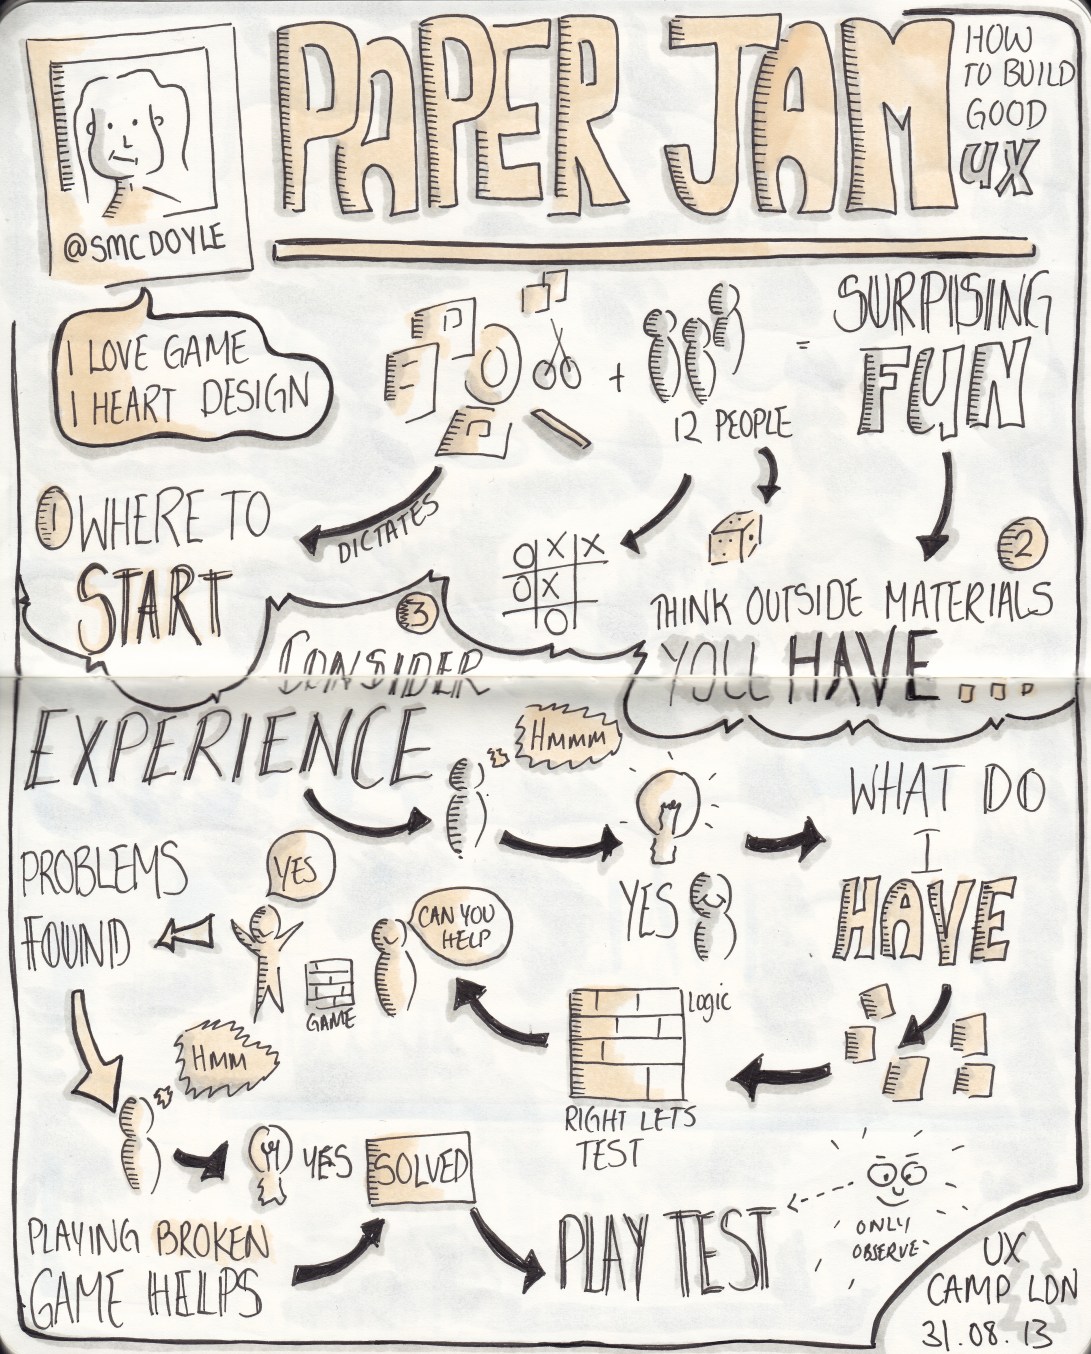 PAPER JAM
HOW
TO BUILD
GOOD
UX
@SMCDOYLE
I LOVE GAME
I HEART DESIGN
+
12 PEOPLE
=
SURPISING
FUN
1 WHERE TO
START
DICTATES
O X X
O X
O
2
THINK OUTSIDE MATERIALS
YOU HAVE...
3
CONSIDER
EXPERIENCE
HMMM
YES
WHAT DO
I
HAVE
LOGIC
RIGHT LETS
TEST
CAN YOU
HELP
GAME
YES
PROBLEMS
FOUND
HMM
YES
SOLVED
PLAYING BROKEN
GAME HELPS
PLAY TEST
ONLY
OBSERVE
UX
CAMP LDN
31.08.13